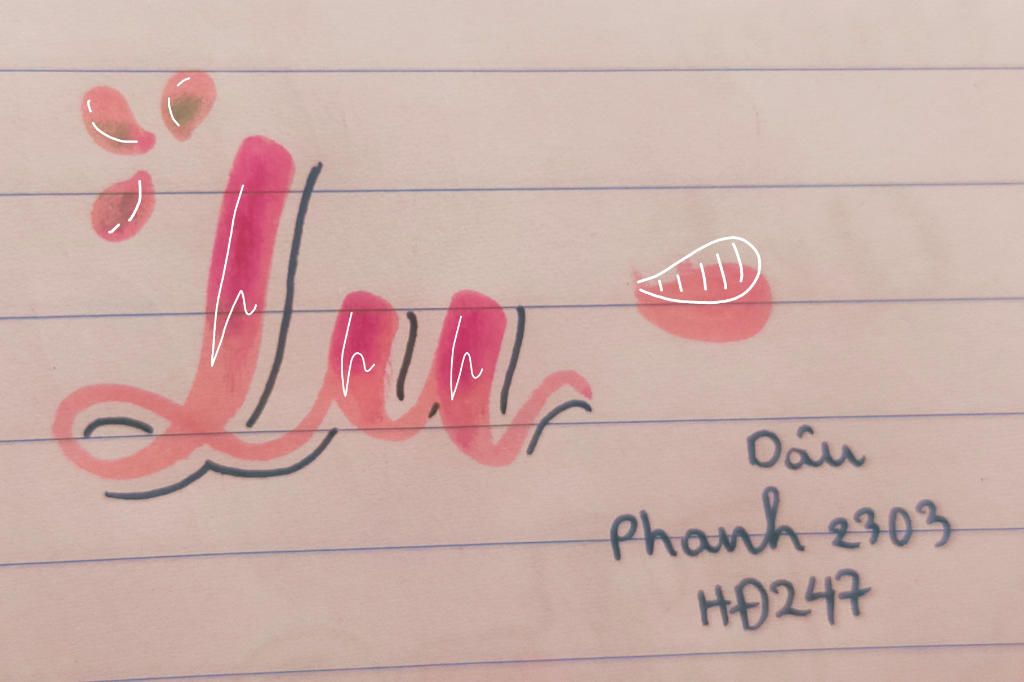 Lu
Dâu
Phanh 2303
HĐ247